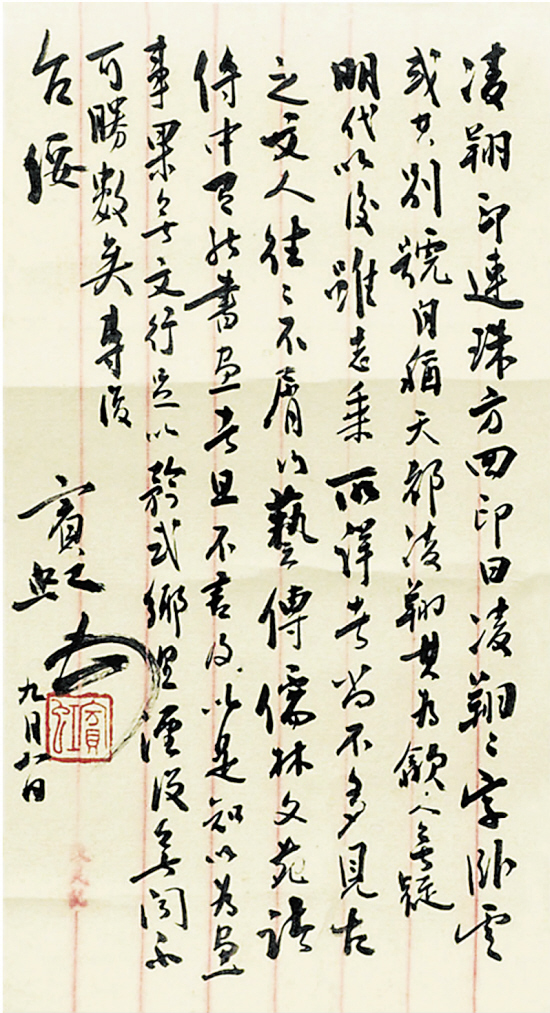 凌翔印連珠方四印曰凌翔翔字卧雲
或其别號自稱天都凌翔其為歙人無疑
明代以後雖志乘所詳者尚不多見古
之文人往〻不屑以藝傳儒林文苑諸
傳中有能書畫者且不言及以是知以為畫
事果無文行足以矜式鄉里湮没無聞不
可勝數矣專復
台綏
賓虹
九月八日
賓虹